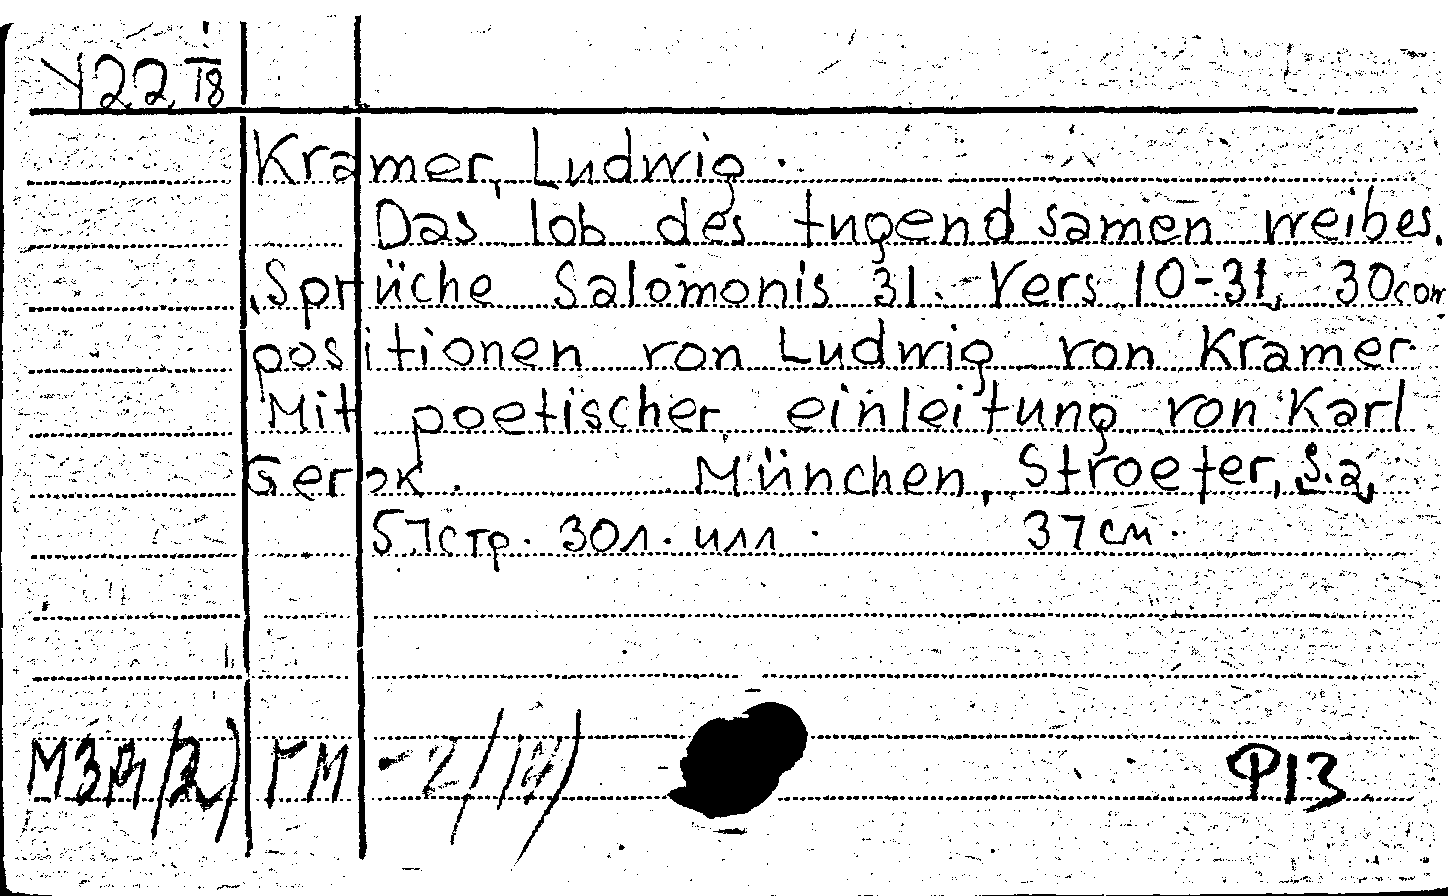 У22 18
Kramer, Ludwig.
Das lob des tugendsamen weibes.
Sprüche Salomonis 31. Vers 10-31, 30com
positionen von Ludwig von Kramer
Mit poetischer einleitung von Karl
Gerok. München, Stroefer, S.a,
57стр. 30л. илл. 37см.
ГМ -2/
Ф13